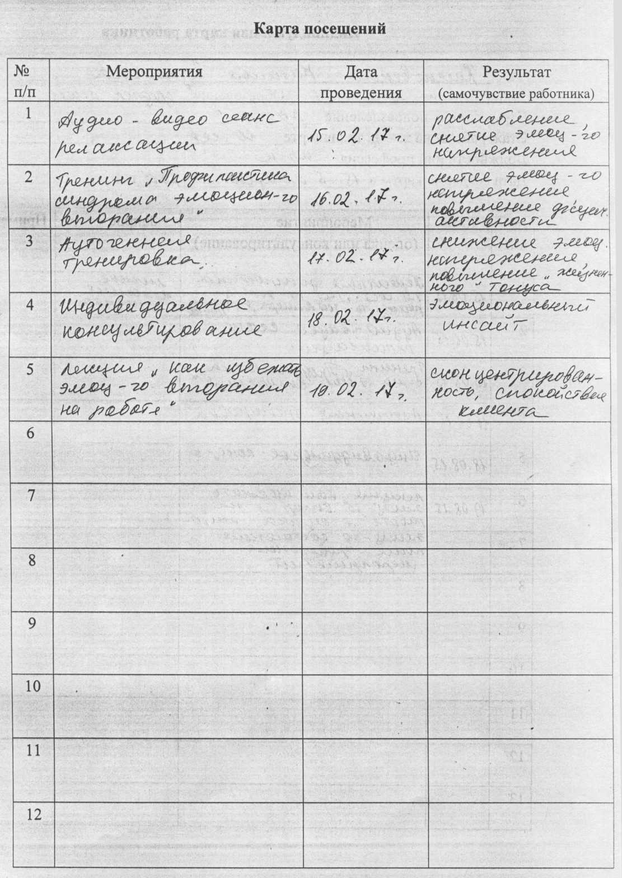 Карта посещений
№ п/п
Мероприятия
Дата проведения
Результат
(самочувствие работника)
1
Аудио - видео сеанс
релаксации
15.02.17г.
расслабление,
снятие эмоц-го
напряжения
2
Тренинг „Профилактика
синдрома эмоцион-го
выгорания“
16.02.17г.
снятие эмоц-го
напряжения
повышение физич.
активности
3
Аутогенная
тренировка.
17.02.17г.
снижение эмоц.
напряжения,
повышение „жизнен-
ного“ тонуса
4
Индивидуальное
консультирование
18.02.17г.
эмоциональный
инсайт
5
лекция „как избежать
эмоц-го выгорания
на работе“
19.02.17г.
сконцентрирован-
ность, спокойствие
клиента
6
7
8
9
10
11
12